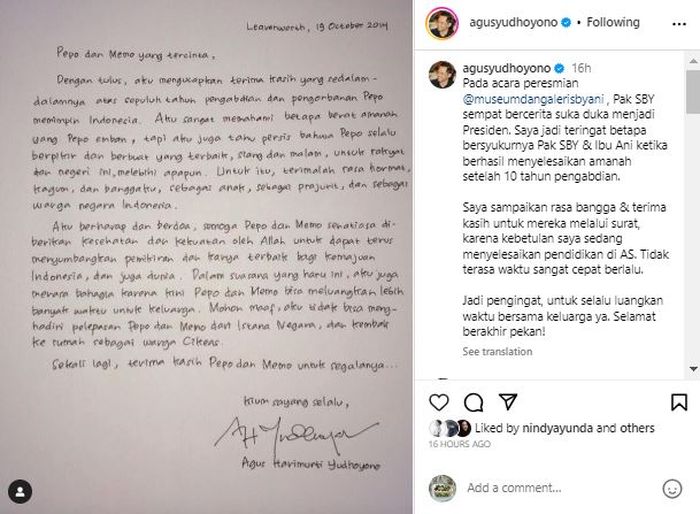 Leavenworth, 19 October 2014
Pepo dan Memo yang tercinta,
Dengan tulus, aku mengucapkan terima kasih yang sedalam-
dalamnya atas sepuluh tahun pengabdian dan pengorbanan Pepo
memimpin Indonesia. Aku sangat memahami betapa berat amanah
yang Pepo emban, tapi aku juga tahu persis bahwa Pepo selalu
berpikir dan berbuat yang terbaik, siang dan malam, untuk rakyat
dan negeri ini, melebihi apapun. Untuk itu, terimalah rasa hormat,
kagum, dan banggaku, sebagai anak, sebagai prajurit, dan sebagai
warga negara Indonesia.
Aku berharap dan berdoa, semoga Pepo dan Memo senatiasa di-
berikan kesehatan dan kekuatan oleh Allah untuk dapat terus
menyumbangkan pemikiran dan karya terbaik bagi kemajuan
Indonesia, dan juga dunia. Dalam suasana yang haru ini, aku juga
merasa bahagia karena kini Pepo dan Memo bisa meluangkan lebih
banyak waktu untuk keluarga. Mohon maaf, aku tidak bisa meng-
hadiri pelepasan Pepo dan Memo dari Istana Negara, dan kembali
ke rumah sebagai warga Cikeas.
Sekali lagi, terima kasih Pepo dan Memo untuk segalanya...
Kium sayang selalu,
Agus Harimurti Yudhoyono
agusyudhoyono • Following
agusyudhoyono 16h
Pada acara peresmian
@museumdangalerisbyani , Pak SBY
sempat bercerita suka duka menjadi
Presiden. Saya jadi teringat betapa
bersyukurnya Pak SBY & Ibu Ani ketika
berhasil menyelesaikan amanah
setelah 10 tahun pengabdian.
Saya sampaikan rasa bangga & terima
kasih untuk mereka melalui surat,
karena kebetulan saya sedang
menyelesaikan pendidikan di AS. Tidak
terasa waktu sangat cepat berlalu.
Jadi pengingat, untuk selalu luangkan
waktu bersama keluarga ya. Selamat
berakhir pekan!
See translation
Liked by nindyayunda and others
16 HOURS AGO
Add a comment...